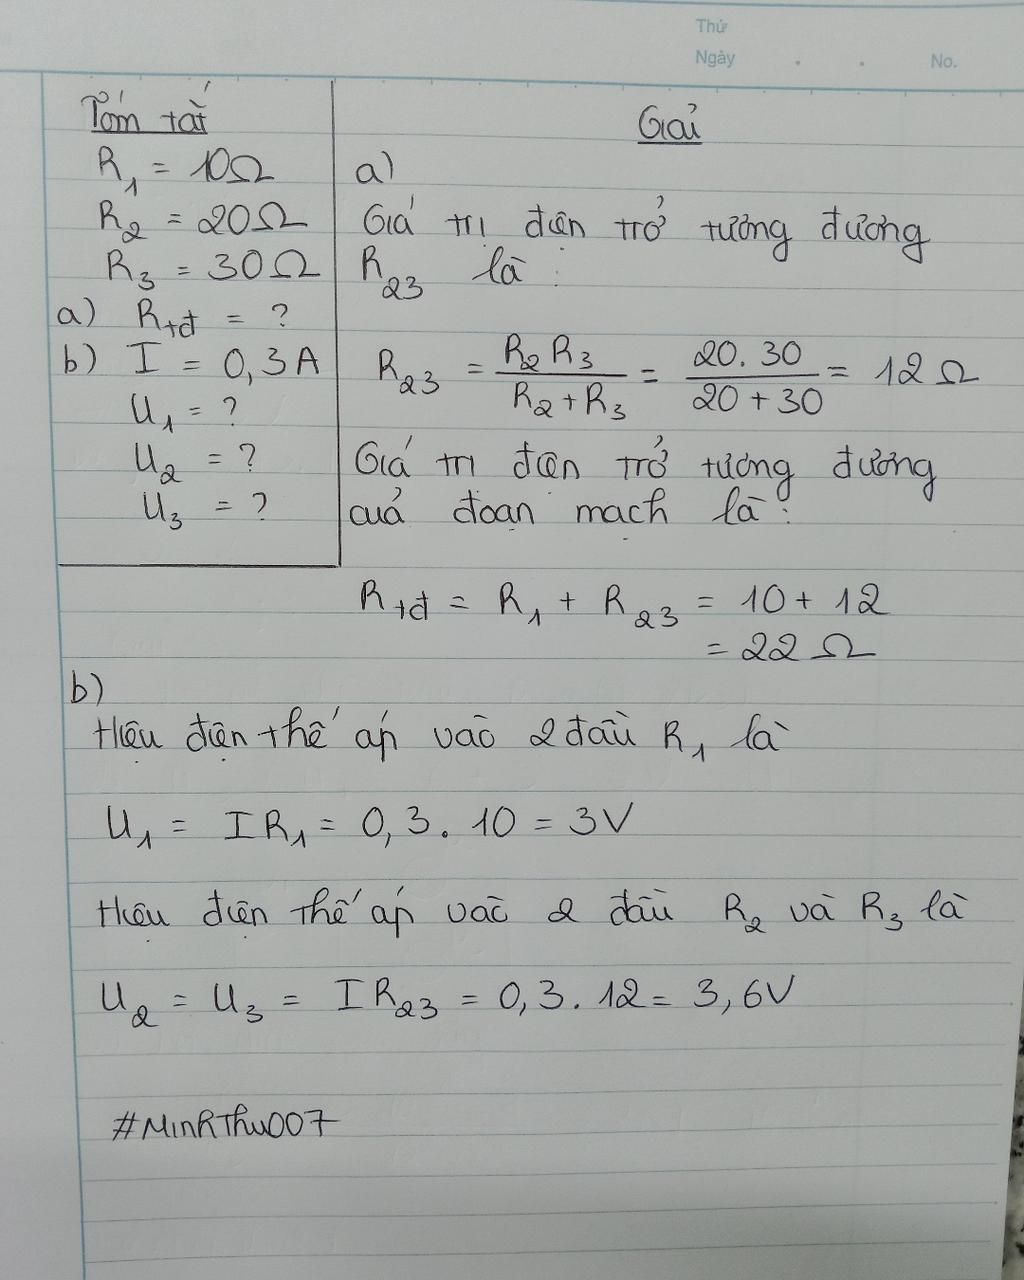 Thứ
Ngày . . No.
Tóm tắt
R₁ = 10Ω
R₂ = 20Ω
R₃ = 30Ω
a) Rtđ = ?
b) I = 0,3A
U₁ = ?
U₂ = ?
U₃ = ?
Giải
a)
Giá trị điện trở tương đương
R₂₃ là :
R₂₃ = R₂R₃ / (R₂+R₃) = 20.30 / (20+30) = 12Ω
Giá trị điện trở tương đương
của đoạn mạch là :
Rtđ = R₁ + R₂₃ = 10 + 12
= 22 Ω
b)
Hiệu điện thế áp vào 2 đầu R₁ là
U₁ = IR₁ = 0,3 . 10 = 3V
Hiệu điện thế áp vào 2 đầu R₂ và R₃ là
U₂ = U₃ = IR₂₃ = 0,3 . 12 = 3,6V
#MinhThu007